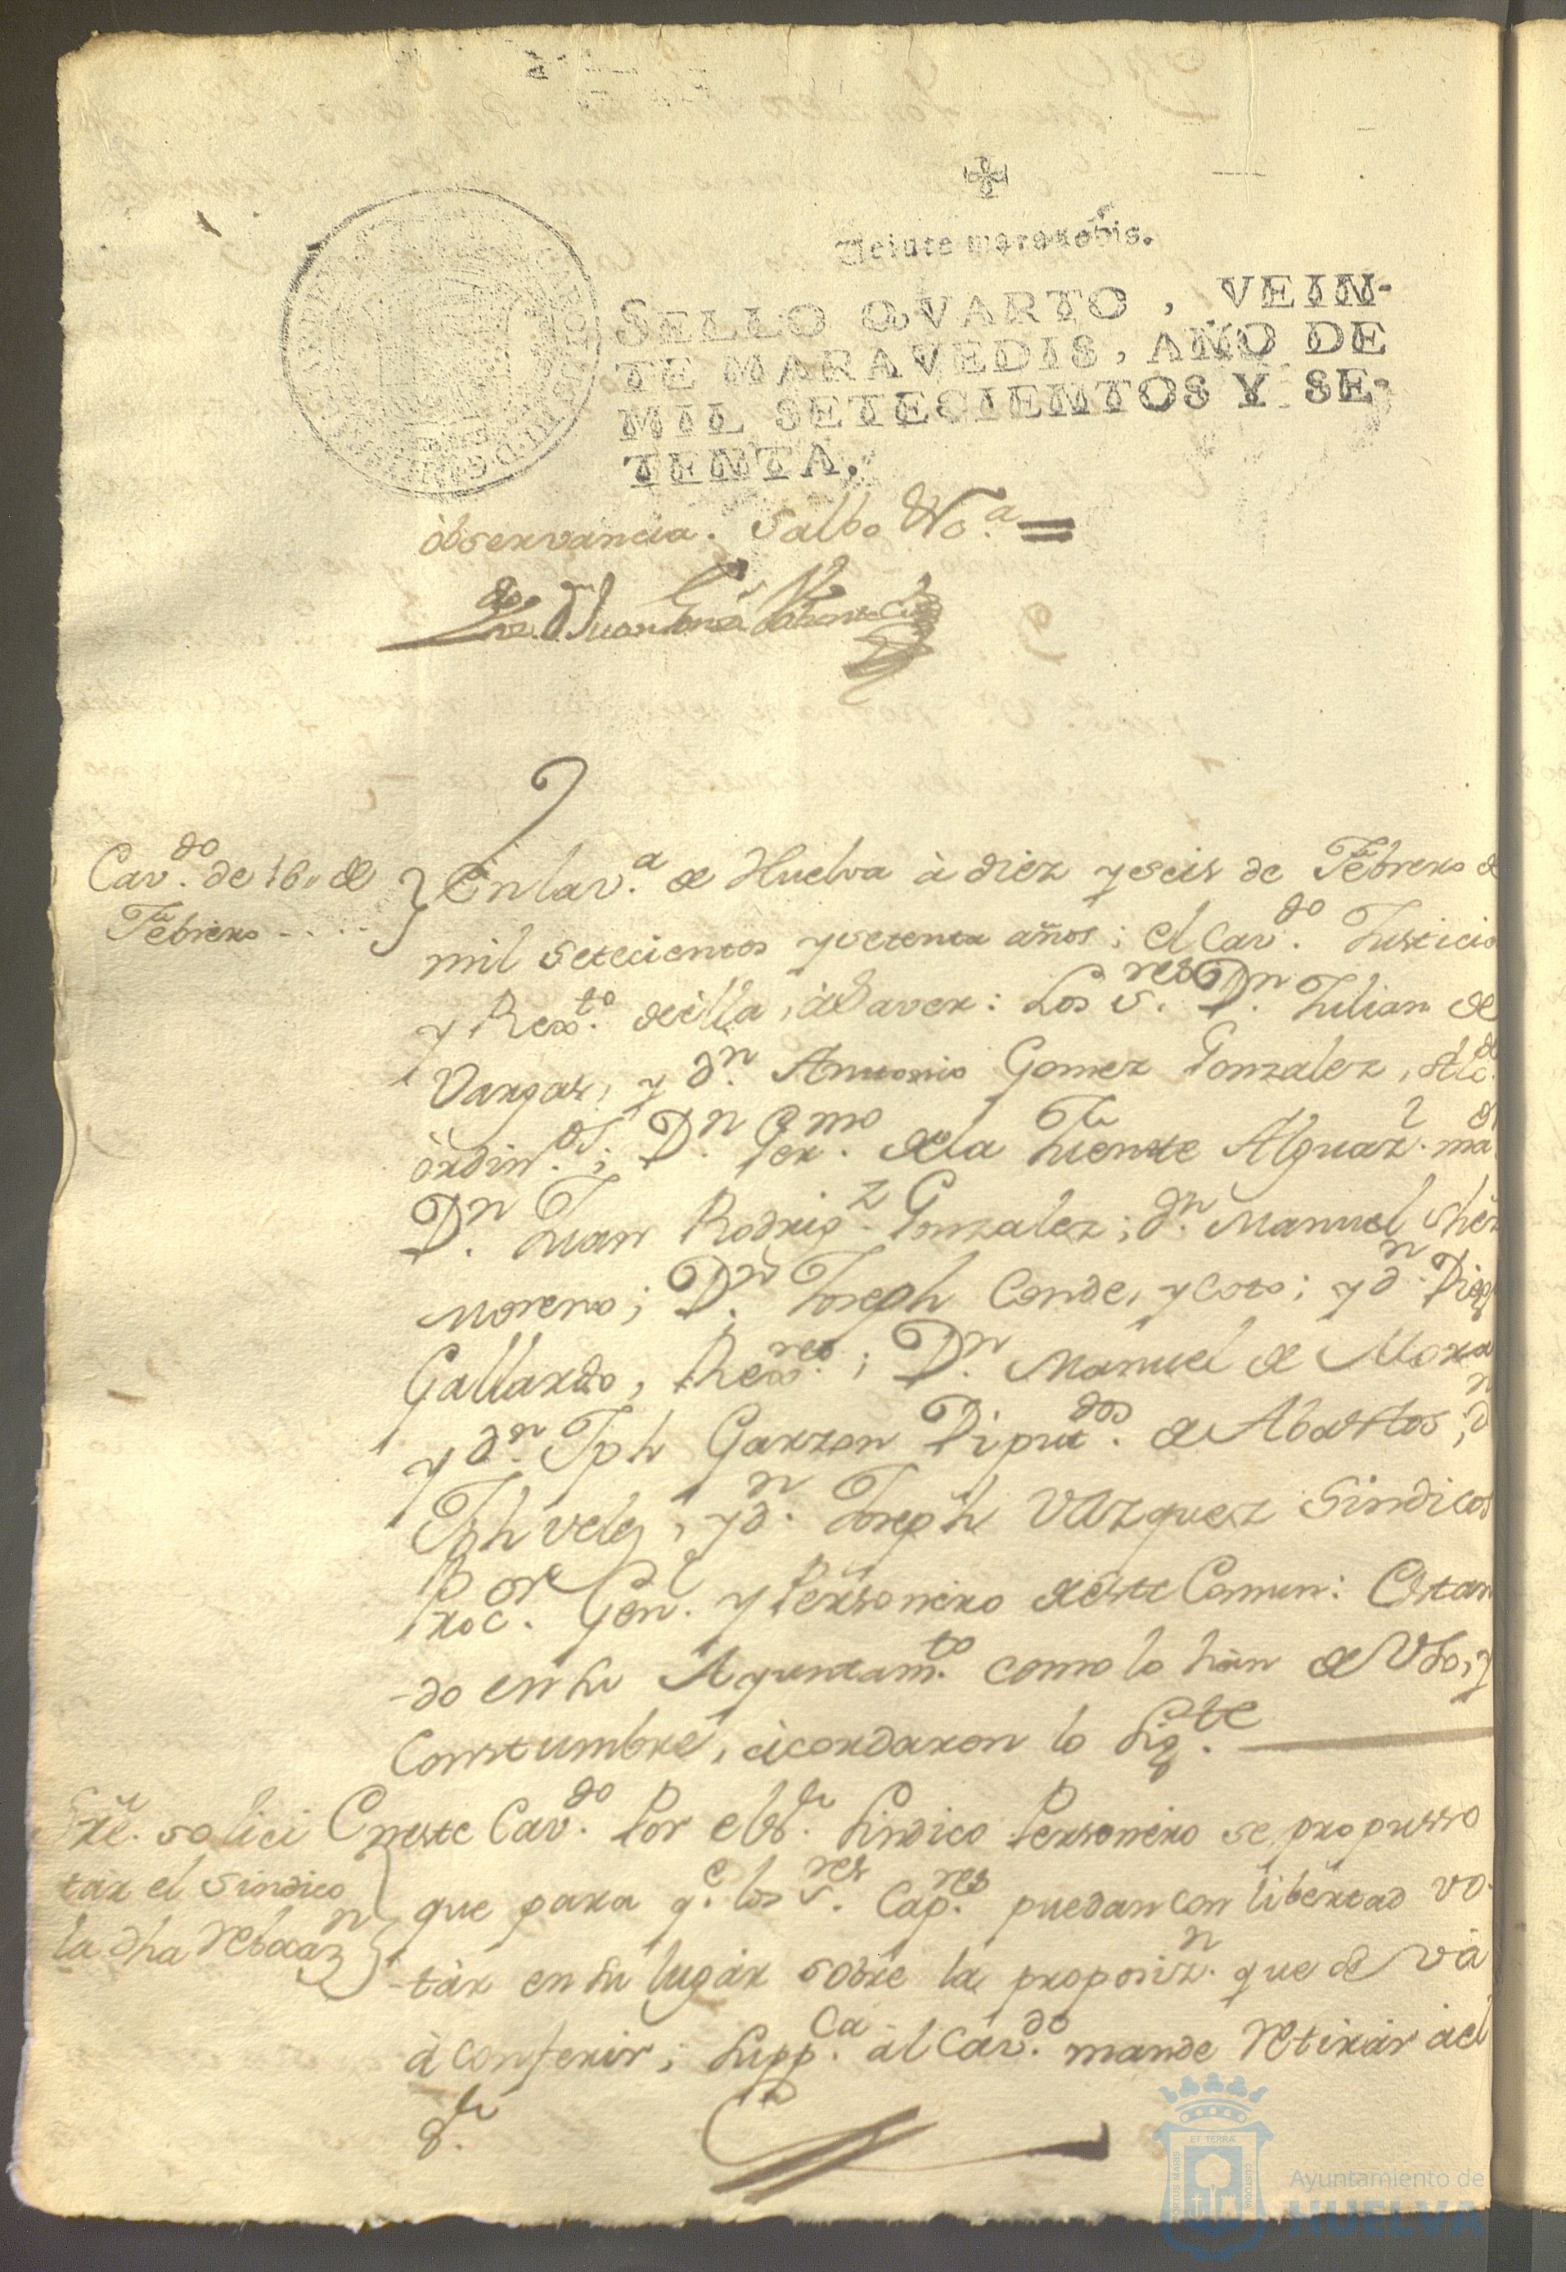 Veinte maravedis.
SELLO QVARTO, VEIN-
TE MARAVEDIS, AÑO DE
MIL SETECIENTOS Y SE-
TENTA.
òbservancia. Salbo
Cav.do de 16 de
Febrero
En la v.a de Huelva à diez y seis de Febrero de
mil setecientos y setenta años; el Cav.do Justicia
y Rex.to de ella, à Saver: Los S.res D.n Julian de
Vargas, y d.n Antonio Gomez Gonzalez, Alc.des
òrdin.os; D.n Ger.mo de la Fuente Alguaz.l ma.or
D.n Juan Rodrig.z Gonzalez; d.n Manuel Shez
Moreno; D.n Joseph Conde, y Coto; y d.n Diego
Gallardo, Rex.res; D.n Manuel de Mora
y d.n Jph Garzon Diput.dos de Abastos; d.n
Jph Velez, y d.n Joseph Vazquez Sindicos
Proc.or Gen.l y Personero de este Comun: Estan
-do en su Ayuntam.to como lo hàn de Uso, y
Constumbre, àcordaron lo sig.te
solici
tar el Sindico
la dha rebaxaz.n
En este Cav.do Por el S.r Sindico Personero se propusso
que para q.e los S.res Cap.res puedan con libertad vo-
-tàr en su lugàr sobre la proposiz.n que se và
à conferir; supp.ca àl Cav.do mande retiràr àel
s.r
ET TERRÆ
PORTUS MARIS
CUSTODIA
Ayuntamiento de
HUELVA